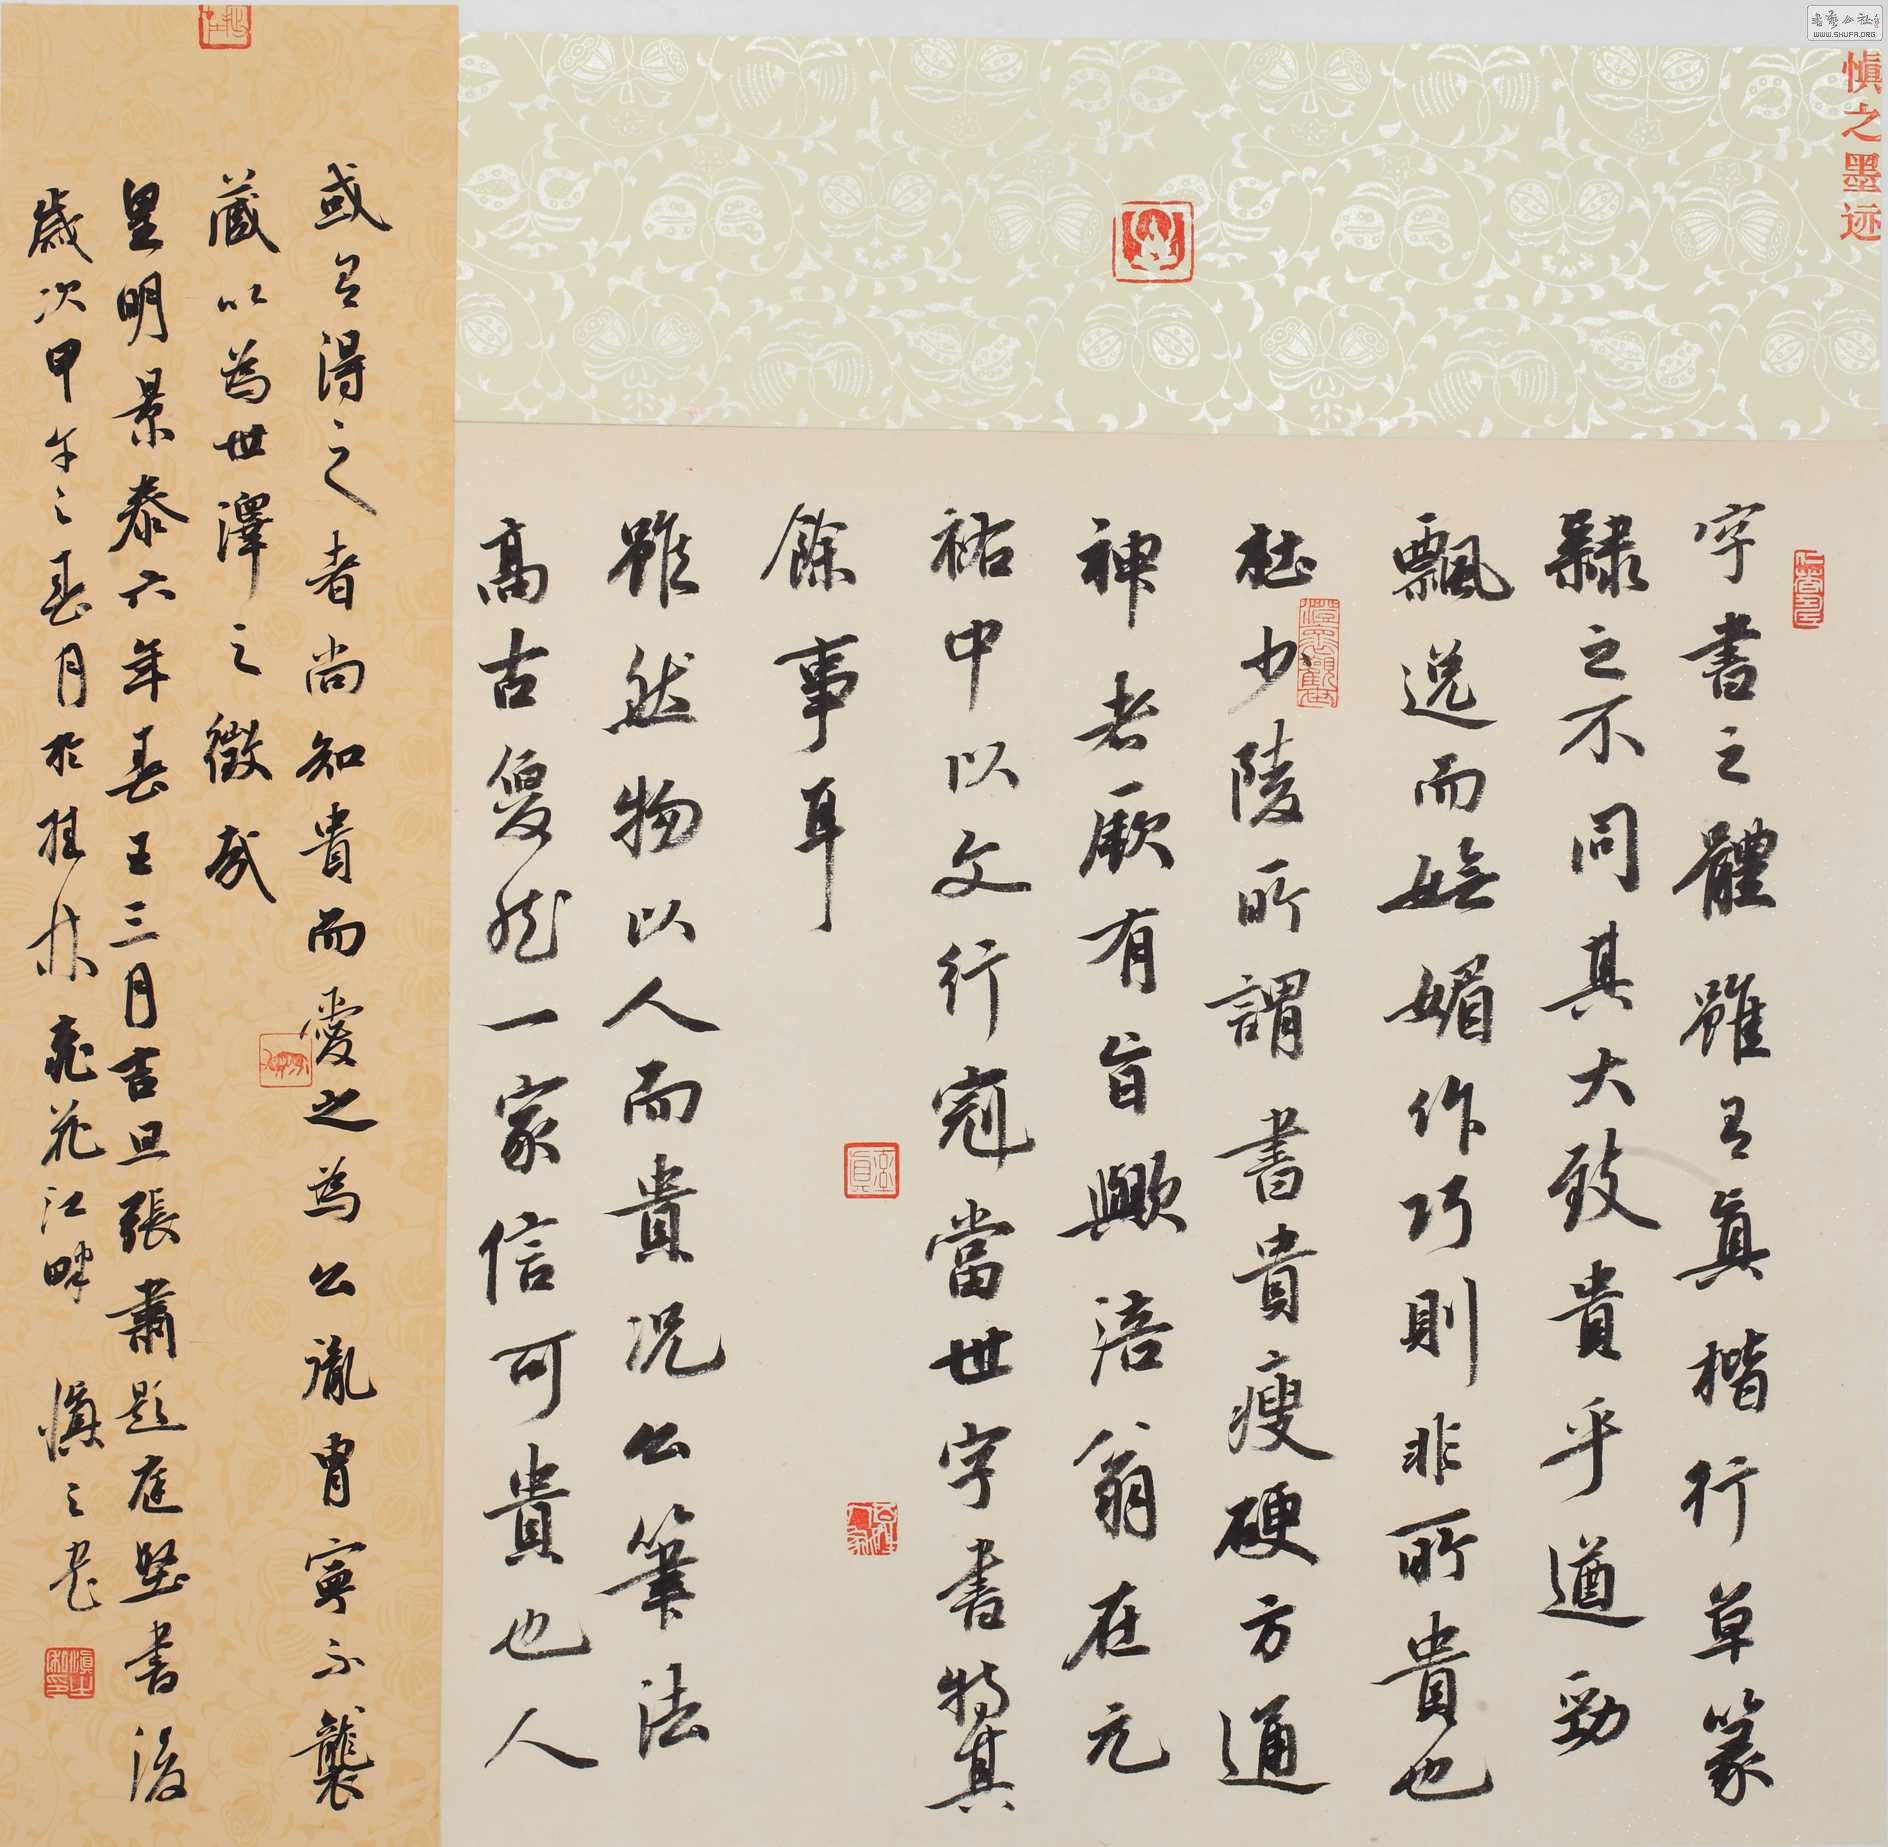 字書之體雖有真楷行草篆
隸之不同其大致貴乎遒勁
飄逸而嫵媚作巧則非所貴也
杜少陵所謂書貴瘦硬方通
神者厥有旨歟涪翁在元
祐中以文行冠當世字書特其
餘事耳
雖然物以人而貴況公筆法
高古夐然一家信可貴也人
或有得之者尚知貴而愛之為公胤胄寧不襲
藏以為世澤之徵哉
皇明景泰六年春王三月吉旦張肅題庭堅書後
歲次甲午之春月於桂林桃花江畔 慎之書
慎之墨迹
書藝公社
WWW.SHUFA.ORG